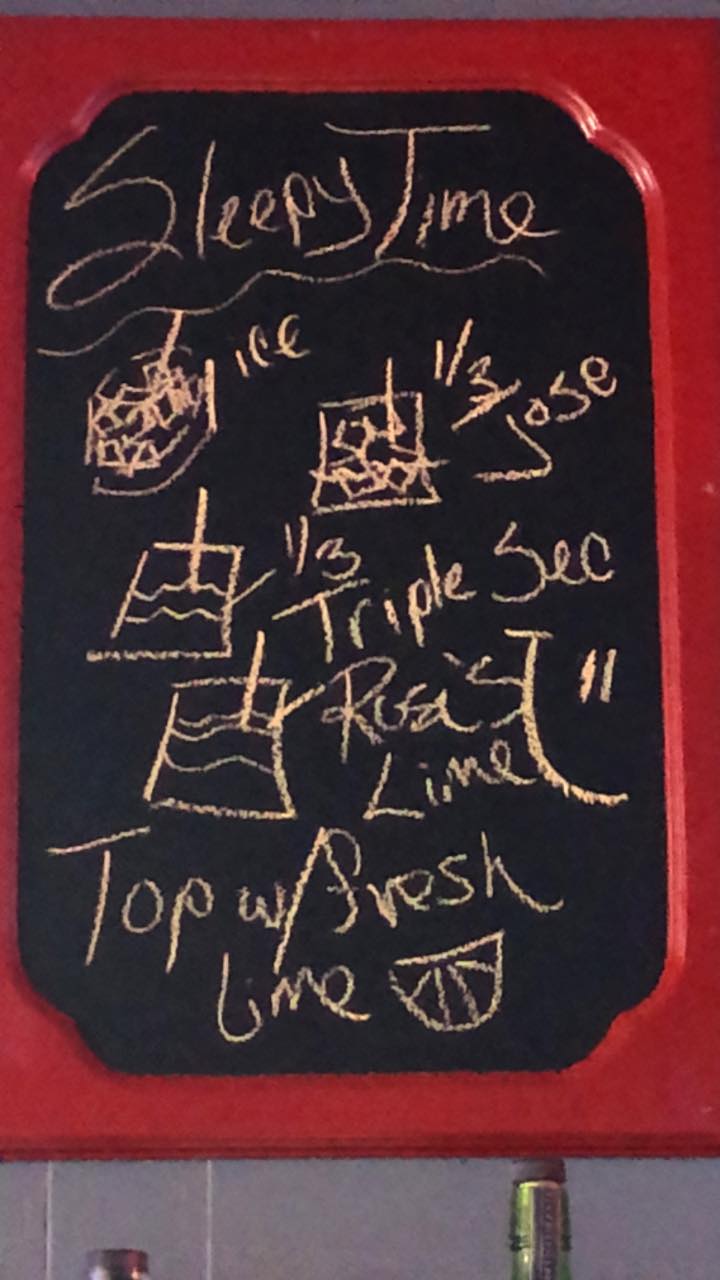 Sleepy Time
ice
1/3
Jose
1/3
Triple Sec
Rosa's
Lime
"
Top w/ fresh
Lime